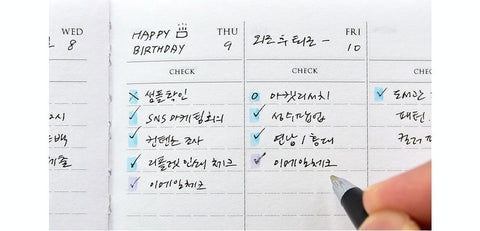 WED
8
HAPPY
BIRTHDAY
THU
9
외근 후 퇴근 -
FRI
10
CHECK
CHECK
샘플확인
SNS 마케팅회의
컨텐츠 조사
리플렛 인쇄 체크
이메일체크
마켓리서치
성수
연남 / 홍대
이메일체크
도서관
패턴
컬러